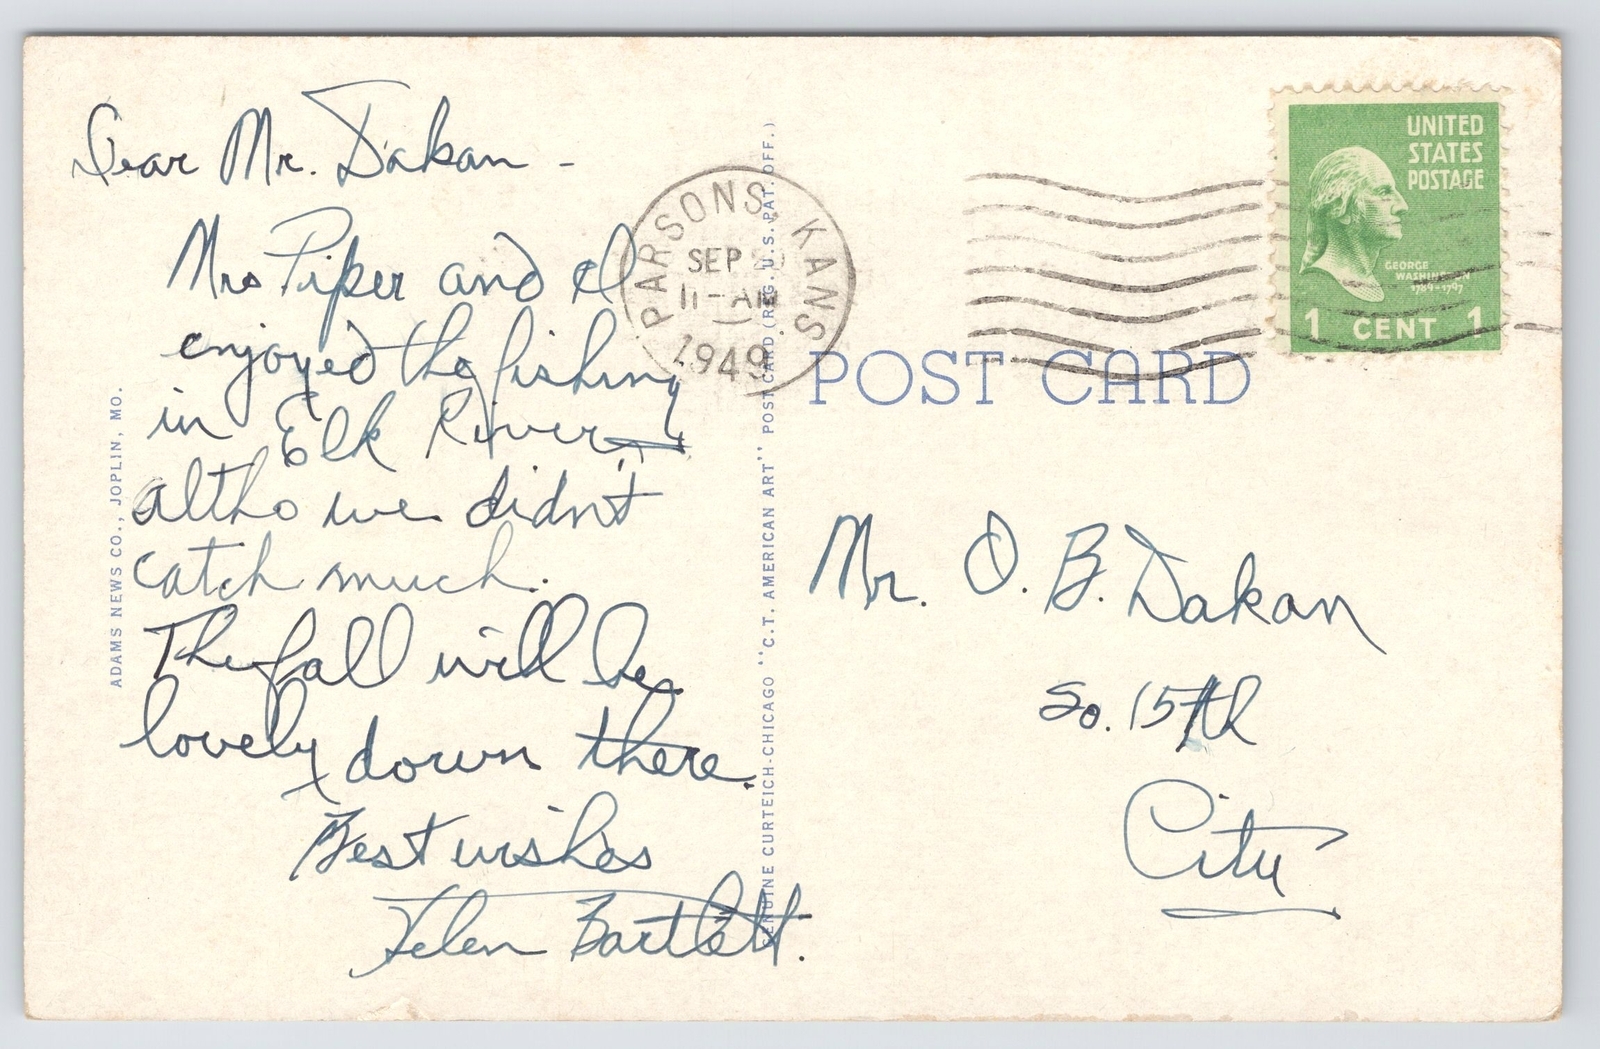 Dear Mr. Dakan -
Mrs Piper and I
enjoyed the fishing
in Elk River,
altho we didn't
catch much.
The fall will be
lovely down there.
Best wishes
Helen Bartlett.
ADAMS NEWS CO., JOPLIN, MO.
GENUINE CURTEICH-CHICAGO "C.T. AMERICAN ART" POST CARD (REG. U.S. PAT. OFF.)
PARSONS, KANS
SEP
11-AM
1949
POST CARD
UNITED
STATES
POSTAGE
GEORGE
WASHINGTON
1789-1797
1 CENT 1
Mr. O. B. Dakan
So. 15th
City